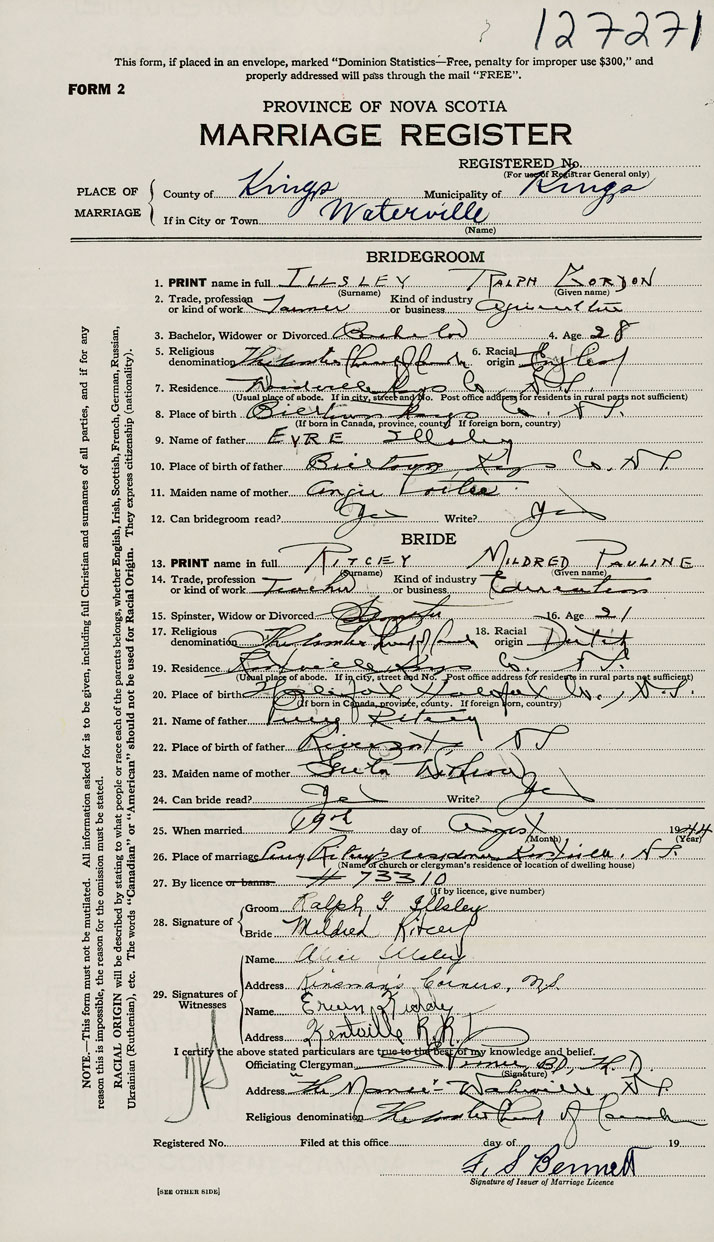 127271
This form, if placed in an envelope, marked “Dominion Statistics—Free, penalty for improper use $300,” and
properly addressed will pass through the mail “FREE”.
FORM 2
PROVINCE OF NOVA SCOTIA
MARRIAGE REGISTER
REGISTERED No.
(For use of Registrar General only)
PLACE OF MARRIAGE
County of Kings Municipality of Kings
If in City or Town Waterville
(Name)
BRIDEGROOM
1. PRINT name in full ILLSLEY RALPH GORDON
(Surname) (Given name)
2. Trade, profession or kind of work Kind of industry or business Agriculture
3. Bachelor, Widower or Divorced Bachelor 4. Age 28
5. Religious denomination 6. Racial origin English
7. Residence Kings Co. N.S.
(Usual place of abode. If in city, street and No. Post office address for residents in rural parts not sufficient)
8. Place of birth Kings Co. N.S.
(If born in Canada, province, county. If foreign born, country)
9. Name of father EYRE Illsley
10. Place of birth of father Kings Co. N.S.
11. Maiden name of mother Angie
12. Can bridegroom read? Yes Write? Yes
BRIDE
13. PRINT name in full RITCEY MILDRED PAULINE
(Surname) (Given name)
14. Trade, profession or kind of work Teacher Kind of industry or business Education
15. Spinster, Widow or Divorced Spinster 16. Age 21
17. Religious denomination 18. Racial origin
19. Residence Kings Co. N.S.
(Usual place of abode. If in city, street and No. Post office address for residents in rural parts not sufficient)
20. Place of birth Halifax Halifax Co., N.S.
(If born in Canada, province, county. If foreign born, country)
21. Name of father Percy Ritcey
22. Place of birth of father Riverport N S
23. Maiden name of mother
24. Can bride read? Yes Write? Yes
25. When married 19th day of August 1944
(Month) (Year)
26. Place of marriage Percy Ritcey's residence N.S.
(Name of church or clergyman's residence or location of dwelling house)
27. By licence or banns # 73310
(If by licence, give number)
28. Signature of
Groom Ralph G. Illsley
Bride Mildred Ritcey
29. Signatures of Witnesses
Name Alice Illsley
Address Kinsman's Corners, N.S.
Name Erwin
Address Kentville R.R.1
I certify the above stated particulars are true to the best of my knowledge and belief.
Officiating Clergyman
(Signature)
Address The Manse Waterville, N.S.
Religious denomination
Registered No. Filed at this office day of 19
F. S Bennett
Signature of Issuer of Marriage Licence
[SEE OTHER SIDE]
NOTE.—This form must not be mutilated. All information asked for is to be given, including full Christian and surnames of all parties, and if for any
reason this is impossible, the reason for the omission must be stated.
RACIAL ORIGIN will be described by stating to what people or race each of the parents belongs, whether English, Irish, Scottish, French, German, Russian,
Ukrainian (Ruthenian), etc. The words “Canadian” or “American” should not be used for Racial Origin. They express citizenship (nationality).